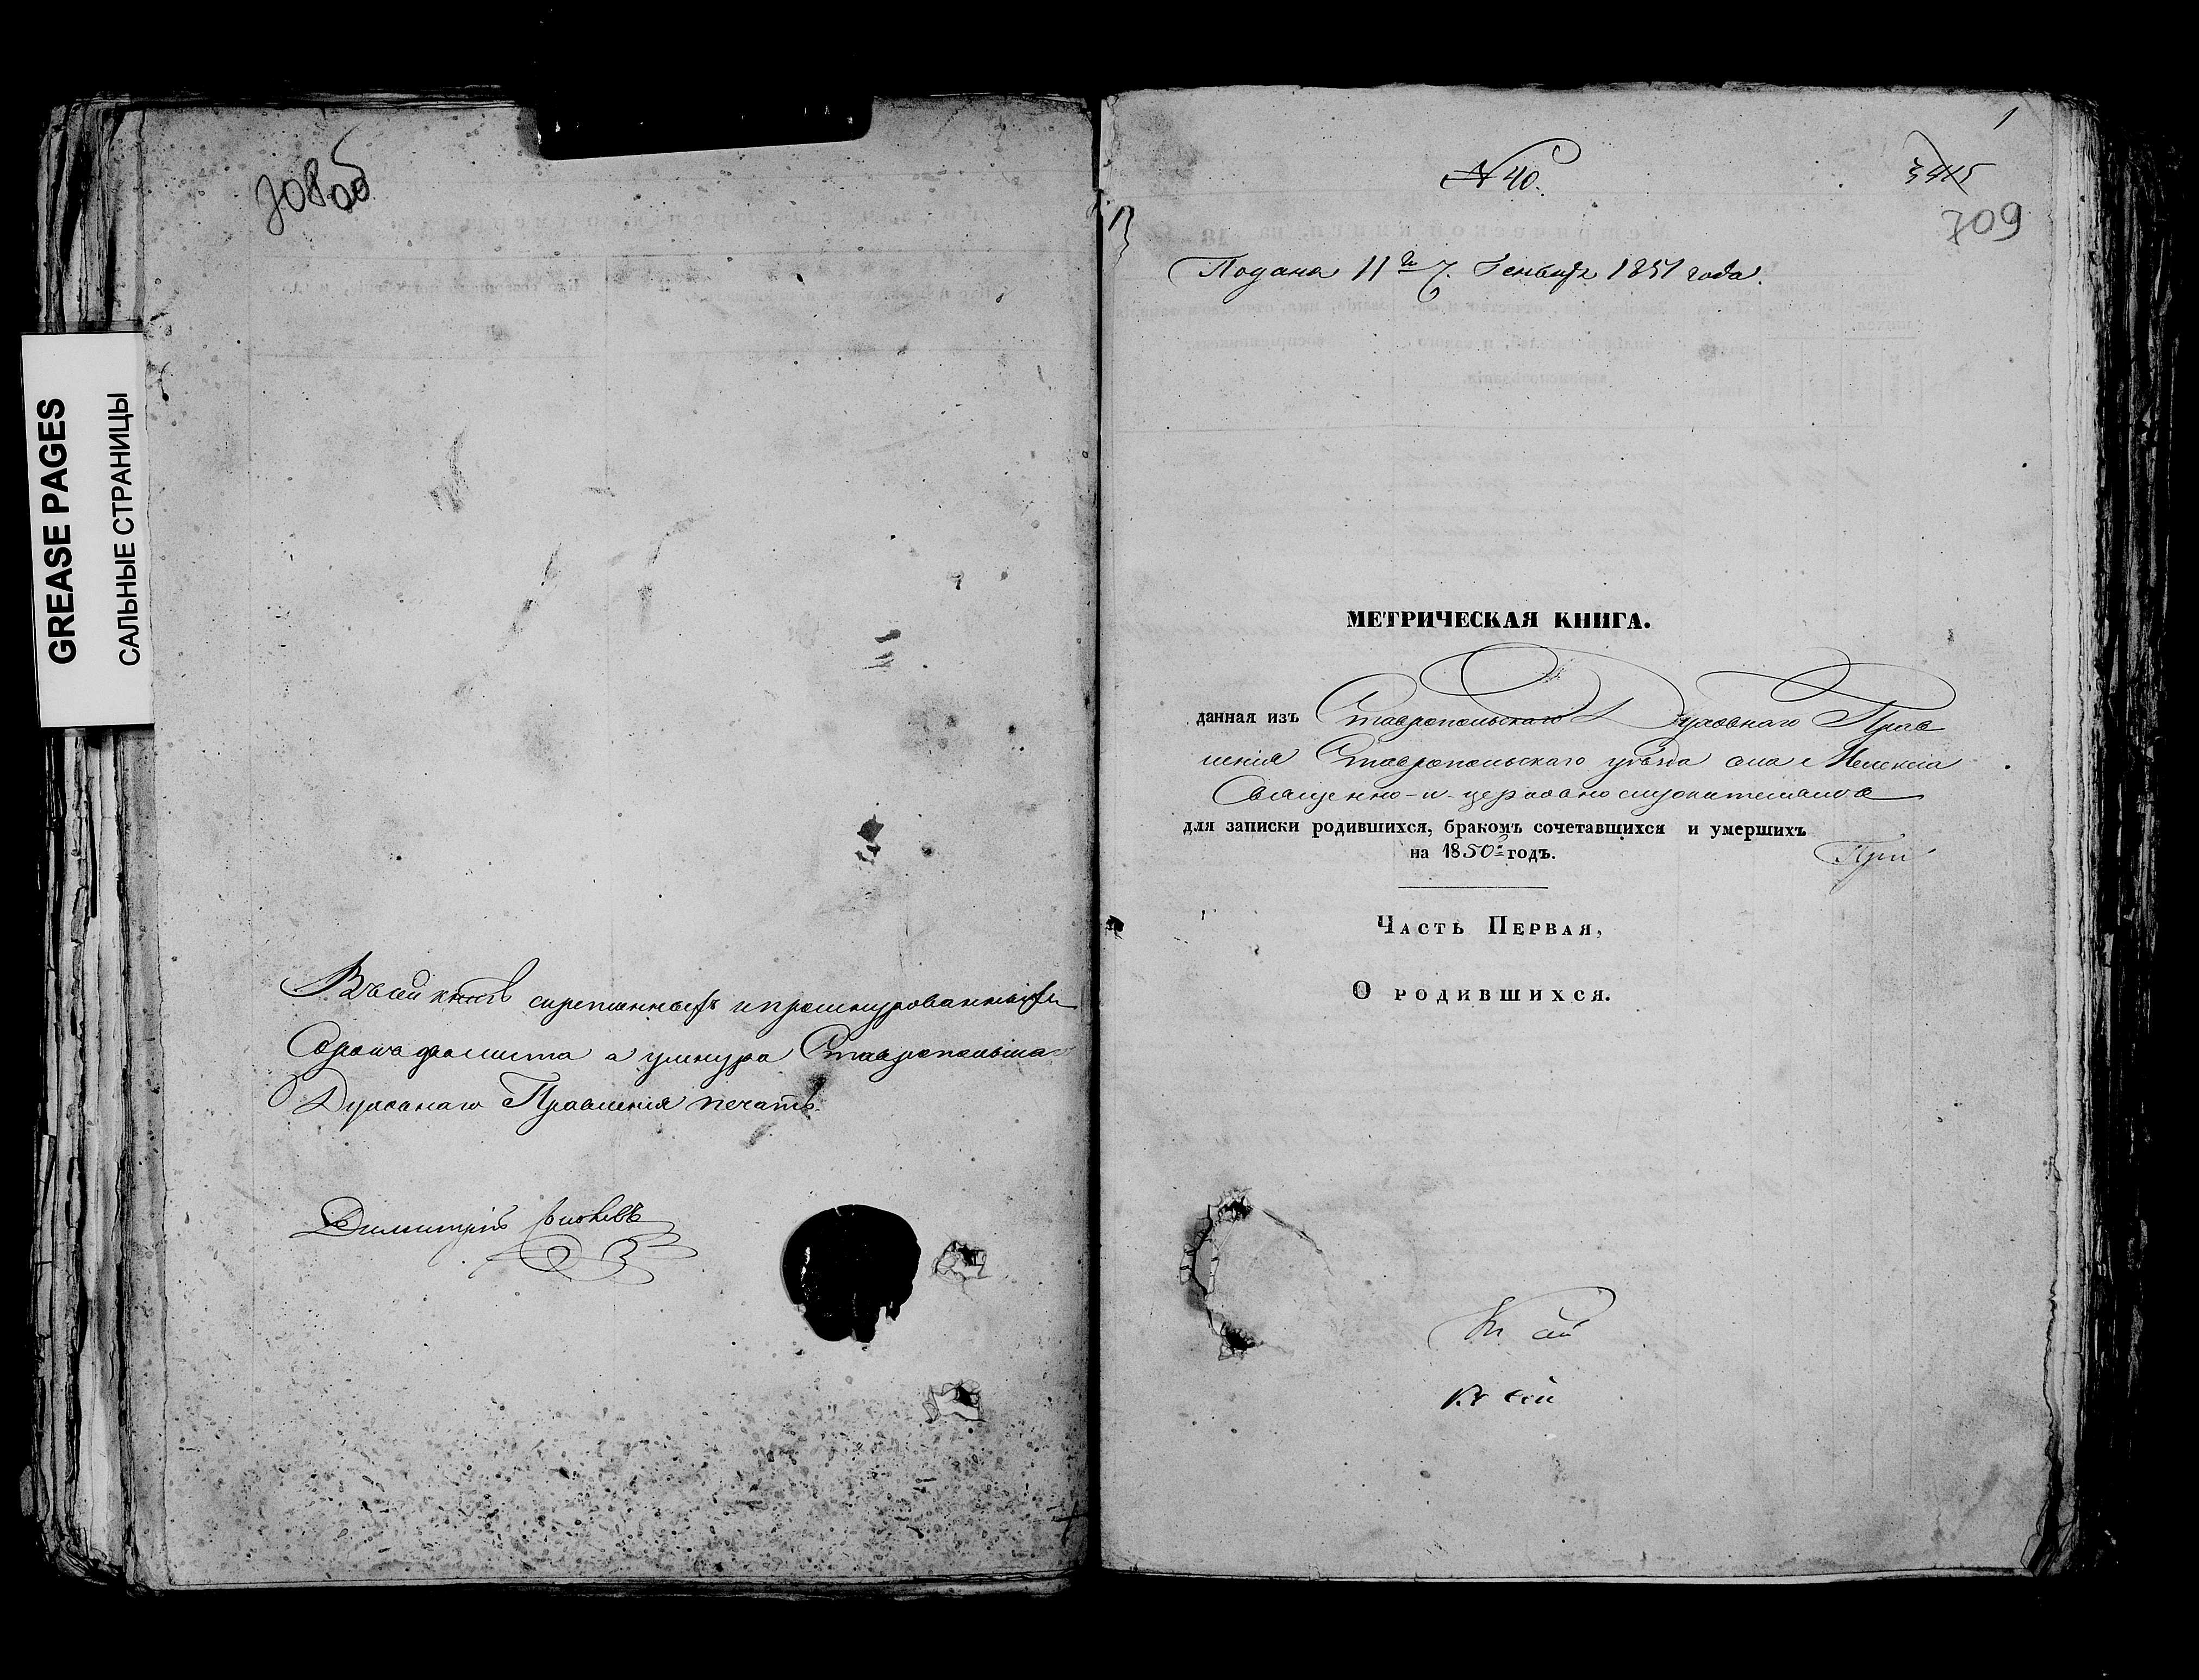 708об
GREASE PAGES
САЛЬНЫЕ СТРАНИЦЫ
Въ сей книгѣ скрепленныхъ и прошнурованныхъ
листа а у шнура Ставропольскаго
Духовнаго Правленія печать.
Димитрій
1
N 40.
709
Подана 11го Генваря 1851 года.
МЕТРИЧЕСКАЯ КНИГА.
данная изъ Ставропольскаго Духовнаго Прав
ленія Ставропольскаго уѣзда села Мелекеса
Священно-и-церковнослужителямъ
для записки родившихся, бракомъ сочетавшихся и умершихъ
на 1850й годъ.
При
Часть Первая,
О родившихся.
Къ сей
Къ сей